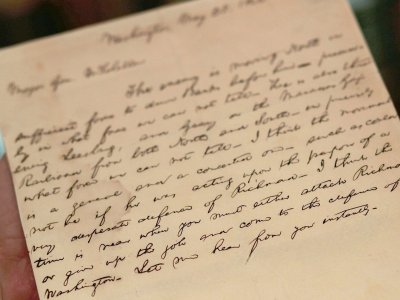 Washington, May 25. 
Major Gen. McClellan
The enemy is moving North in
sufficient force to drive Banks before him - precise-
ly in what force we can not tell. He is also threat-
ening Leesburg, and Geary on the Manassas Gap
Railroad from both North and South - in precisely
what force we can not tell. I think the movement
is a general and concerted one, such as could
not be if he was acting upon the purpose of a
very desperate defence of Richmond. I think the
time is near when you must either attack Richmond
or give up the job and come to the defence of
Washington. Let me hear from you instantly.